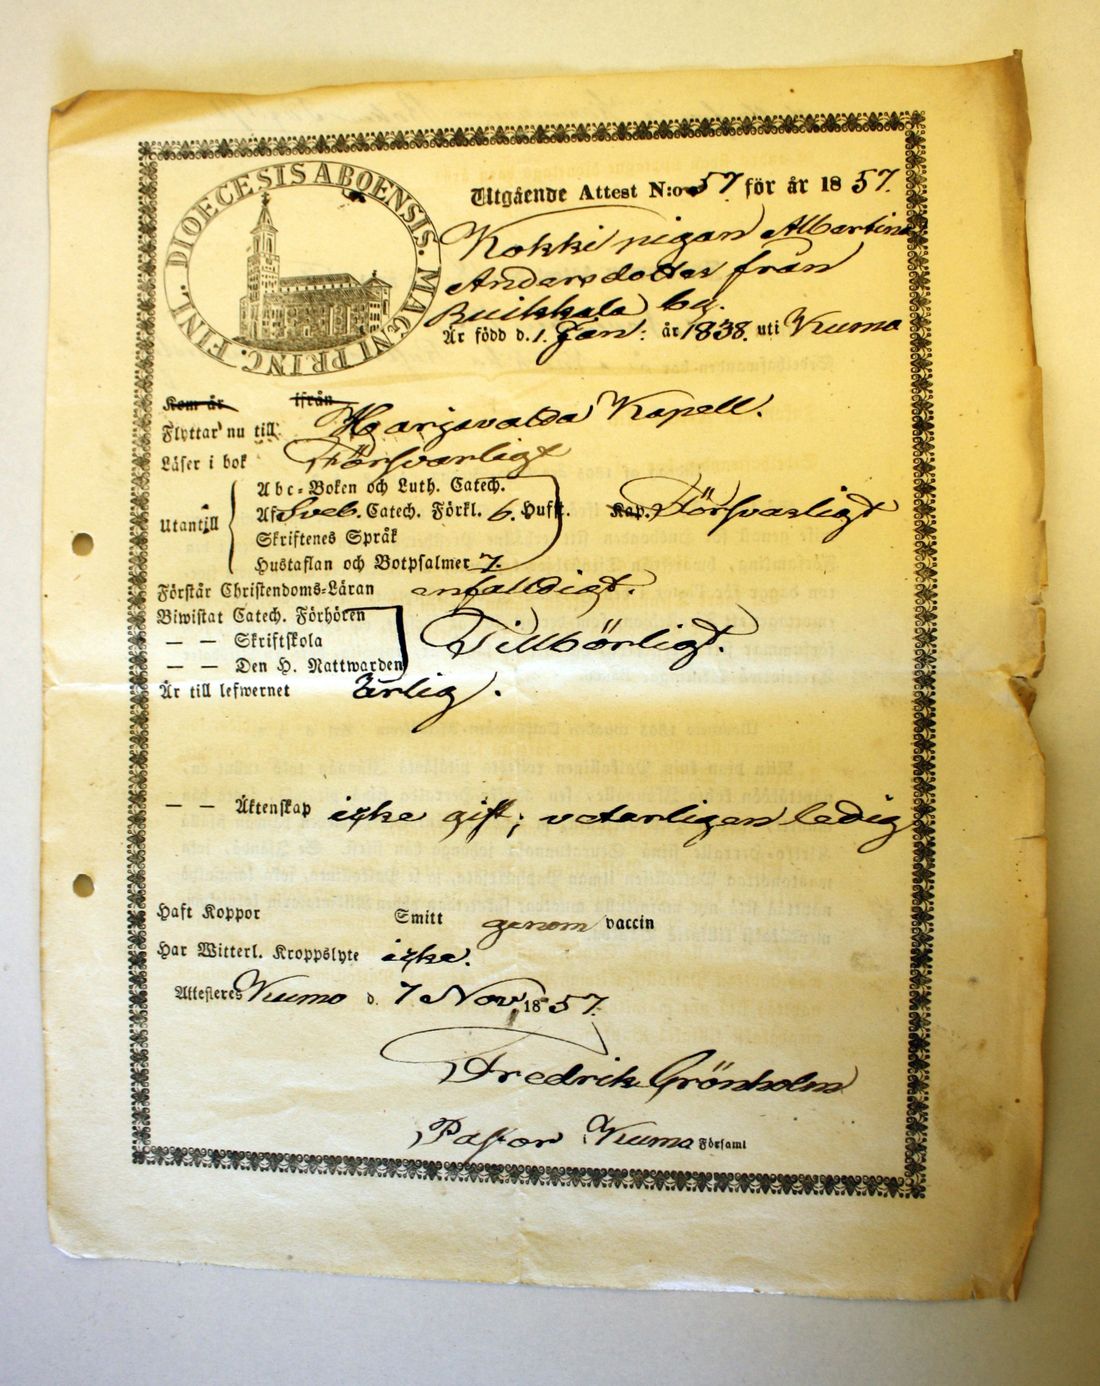 DIOECESIS ABOENSIS. MAGNI PRINC. FINL.
Utgående Attest N:o 57 för år 1857.
Kokki pigan Albertina
Andersdotter från
Buikkala by.
Är född d. 1. Jan: år 1838. uti Kumo
Kom år ifrån
Flyttar nu till Harjavalda Kapell.
Läser i bok Försvarligt
Abc-Boken och Luth. Catech.
Utantill Af Sveb. Catech. Förkl. 6. Hufst. Kap. Försvarligt
Skriftenes Språk
Hustaflan och Botpsalmer 7.
Förstår Christendoms-Läran enfalldigt.
Biwistat Catech. Förhören
— — Skriftskola Tillbörligt.
— — Den H. Nattwarden
Är till lefwernet ärlig.
— — Äktenskap icke gift; veterligen ledig
Haft Koppor Smitt genom vaccin
Har Witterl. Kroppslyte icke.
Attesteres Kumo d. 7 Nov. 1857.
Fredrik Grönholm
Pastor Kumo Församl